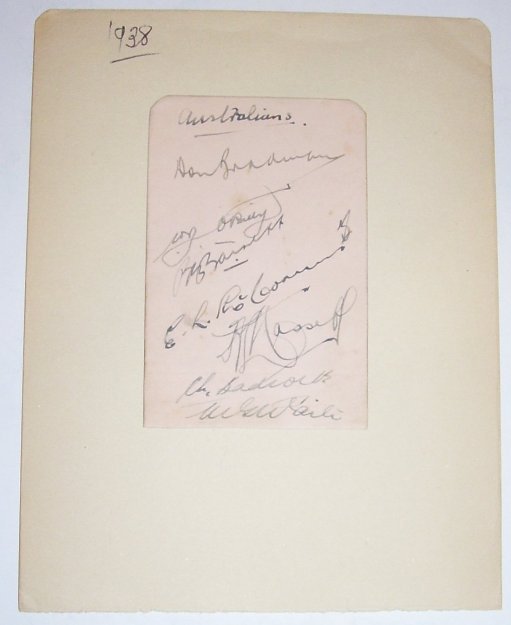 1938
Australians.
Don Bradman
W.J. O'Reilly
B.A. Barnett
E. L. McCormick
A.L. Hassett
C.L. Badcock
M.G. Waite